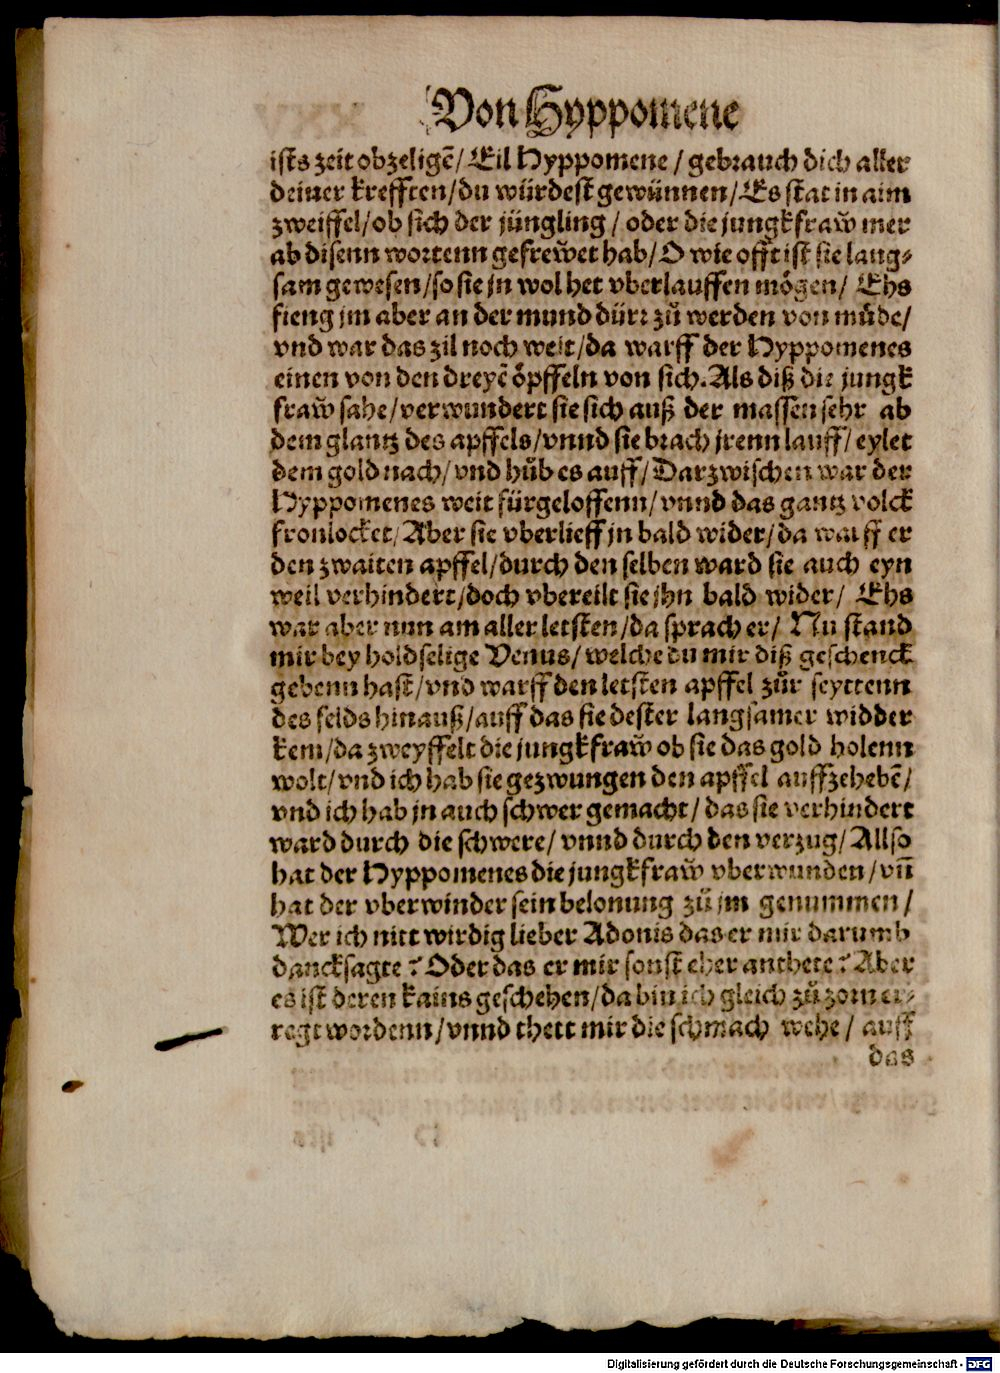 Von Hyppomene
ists zeit obzeligē/ Eil Hyppomene / gebrauch dich aller
deiner krefften/du würdest gewünnen/Es stat in aim
zweiffel/ob sich der jüngling / oder die jungkfraw̃ mer
ab disenn wortenn gefrew̃et hab/O wie offt ist sie lang-
sam gewesen/so sie jn wol het vberlauffen mögen/ Ehs
fieng jm aber an der mund dürr zů werden von můde/
vnd war das zil noch weit/da warff der Hyppomenes
einen von den dreyē öpffeln von sich.Als diß die jungk
fraw̃ sahe/verwundert sie sich auß der massen sehr ab
dem glantz des apffels/vnnd sie brach jrenn lauff/eylet
dem gold nach/vnd hůb es auff/Darzwischen war der
Hyppomenes weit fürgeloffenn/vnnd das gantz volck
fronlocket/Aber sie vberlieff jn bald wider/da warff er
den zwaiten apffel/durch den selben ward sie auch eyn
weil verhindert/doch vbereilt sie jhn bald wider/ Ehs
war aber nun am aller letsten/da sprach er/ Nu stand
mir bey holdselige Venus/welche du mir diß geschenck
gebenn hast/vnd warff den letsten apffel zůr seyttenn
des felds hinauß/auff das sie dester langsamer widder
kem/da zweyffelt die jungkfraw̃ ob sie das gold holenn
wolt/vnd ich hab sie gezwungen den apffel auffzehebē/
vnd ich hab jn auch schwer gemacht/das sie verhindert
ward durch die schwere/vnnd durch den verzug/Allso
hat der Hyppomenes die jungkfraw̃ vberwunden/vn̄
hat der vberwinder sein belonung zů jm genummen/
Wer ich nitt wirdig lieber Adonis das er mir darumb
dancksagte? Oder das er mir sonst eher anthete? Aber
es ist deren kains geschehen/da bin ich gleich zů zorn er-
regt wordenn/vnnd thett mir die schmach wehe/ auff
das
Digitalisierung gefördert durch die Deutsche Forschungsgemeinschaft - DFG